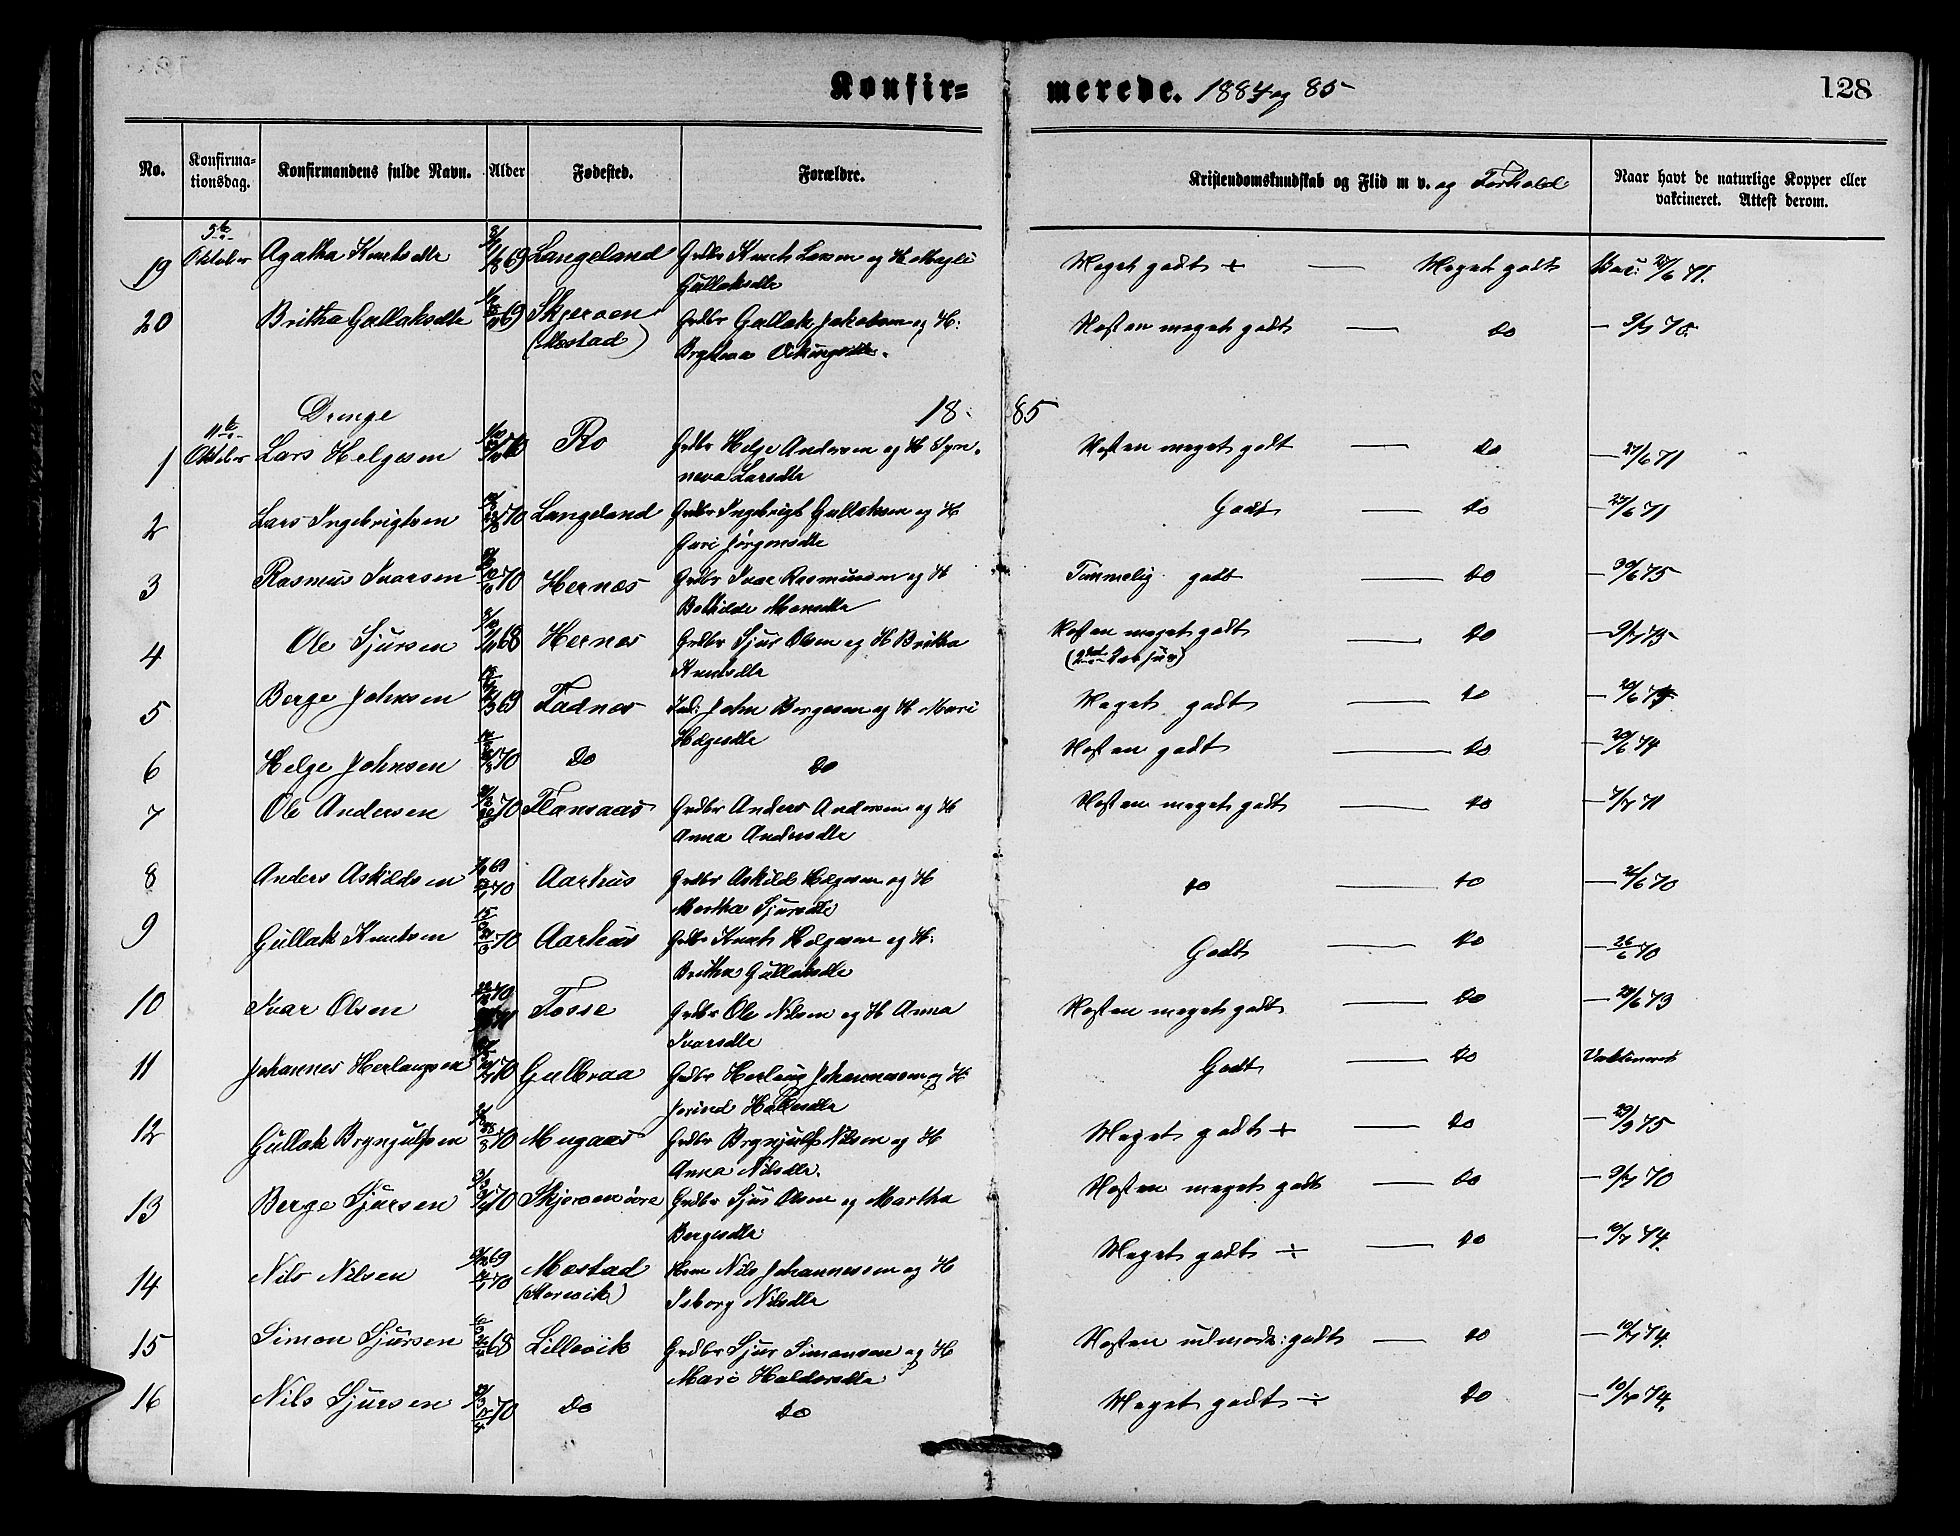 Konfirmerede. 1884 og 85
128
No. Konfirmationsdag. Konfirmandens fulde Navn. Alder Fødested. Forældre. Kristendomskundskab og Flid m v. og Forhold Naar havt de naturlige Kopper eller vakcineret. Attest derom.
19 5te Oktober Agatha Knutsdtr 69 Langeland Grdbr Knut Larsen og H. Gullaksdtr Meget godt + — Meget godt Vac: 71.
20 Britha Gullaksdtr 69 Skjerven (Mostad) Grdbr Gullak Jakobsen og H: Vikingsdtr. Næsten meget godt — do — 9/7 70.
Drenge 1885
1 11te Oktober Lars Helgesen 70 Ro Grdbr Helge Andersen og H Synneva Larsdtr Næsten meget godt — do — 27/6 71
2 Lars Ingebrigtsen 70 Langeland Grdbr Ingebrigt Gullaksen og H Guri Jørgensdtr Godt — do — 27/6 71
3 Rasmus Ivarsen 70 Hernæs Grdbr Ivar Rasmussen og H Bothilde Monsdtr Temmelig godt — do — 30/6 75
4 Ole Sjursen 68 Hernes Grdbr Sjur Olsen og H Britha Knutsdtr Næsten meget godt — do — 9/7 75
5 Berge Johnsen 69 Fadnes Ind: John Bergesen og H Mari Helgesdtr Meget godt — do
6 Helge Johnsen 70 do do Næsten godt — do — 74
7 Ole Andersen 70 Flansaas Grdbr Anders Andersen og H Anna Andersdtr Næsten meget godt — do — 71
8 Anders Askildsen 69 70 Aarhus Grdbr Askild Helgesen og H Martha Sjursdtr do — do — 26/6 70
9 Gullak Knutsen 70 Aarhus Grdbr Knut Helgesen og H: Britha Gullaksdtr Godt — do — 26/6 70
10 Ivar Olsen 70 Fosse Grdbr Ole Nilsen og H Anna Ivarsdtr Næsten meget godt — do — 73
11 Johannes Herlaugsen 70 Gulbraa Grdbr Herlaug Johannessen og H Jorind Godt — do Vaktineret
12 Gullak Brynjulfsen 70 Mugaas Grdbr Brynjulf Nilsen og H Anna Nilsdtr. Meget godt + — do — 29/9 75
13 Berge Sjursen 70 Skjerven øvre Grdbr Sjur Olsen og Martha Bergesdtr Næsten meget godt — do — 9/7 70
14 Nils Nilsen 69 70 Mostad (Storevik) Nils Johannessen og H Isborg Nilsdtr Meget godt ÷ — do — 10/7 74.
15 Simon Sjursen 68 Lillevik Grdbr Sjur Simonsen og H Mari Haldorsdtr Næsten udmærk: godt — do — 10/7 74.
16 Nils Sjursen 70 do do Meget godt ÷ — do — 10/7 74.